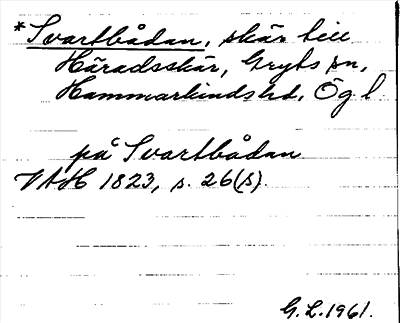 *Svartbådan, skär till
Häradsskär, Gryts sn,
Hammarkinds hd. Ög l
på Svartbådan
VAH 1823, s. 26(s).
G.L.1961.